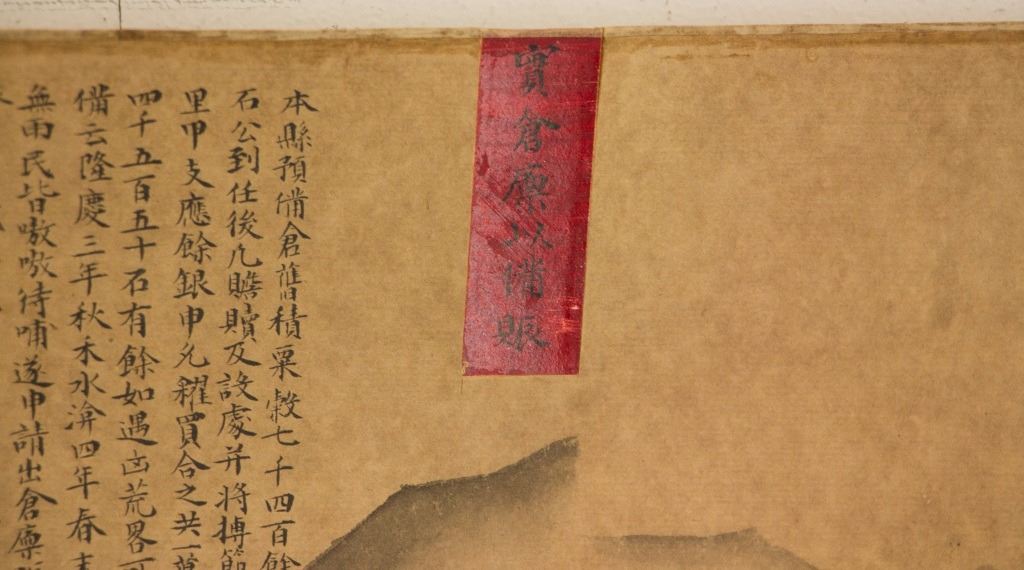 實倉廪以備賑
本縣預備倉舊積粟穀七千四百餘
石公到任後凡贍贖及設處并將撙節
里甲支應餘銀申允糴買合之共一萬
四千五百五十石有餘如遇凶荒畧可
備云隆慶三年秋禾水渰四年春夫
無雨民皆嗷嗷待哺遂申請出倉廪